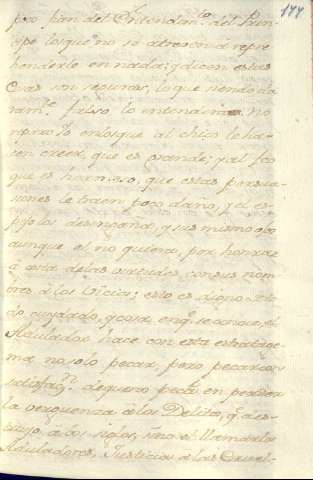 177
poco fian del Entendim.to del Prin-
cipe los que no se atreven a repre
henderle en nada; y dicen estas
Cosas son seguras, lo que siendo cla
ram.te falso lo intendieron. No
apruevo en los que al chico le ha-
cen creer, que es grande; y al feo
que es hermoso, que estas persua-
siones le traen poco daño, y el es-
pejo lo desengaña, y sus mismos ojos
aunque él no quiera, por honrar
á costa de las virtudes, con sus nom
bres á los Vicios; esto es digno de to
do cuydado, y cosa, en q.e se conoce, el
Adulador hace con esta estratage-
ma no solo pecar, pero pecar con
satisfac.n de que no peca, en perder
la verguenza á los Delitos, q.e des-
truyo á los siglos, sino el llamar los
Aduladores, Justicia á las Cruel-